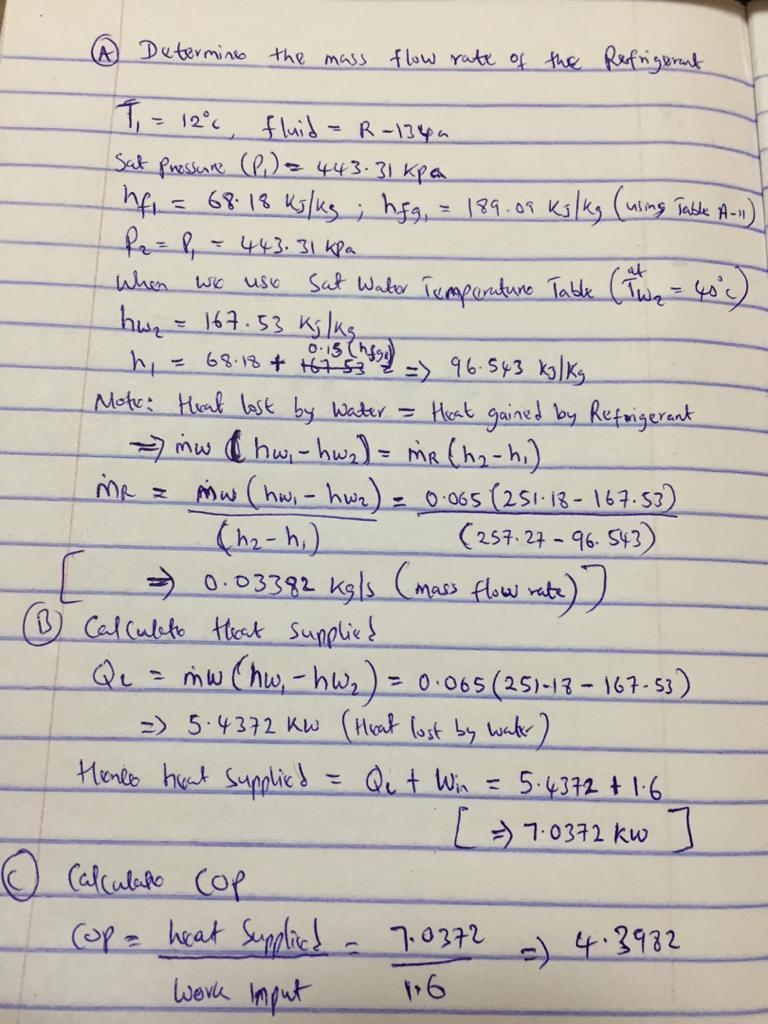 (A) Determine the mass flow rate of the Refrigerant
T₁ = 12°C, fluid = R-134a
Sat Pressure (P₁) = 443.31 kPa
hf₁ = 68.18 KJ/Kg ; hfg₁ = 189.09 KJ/Kg (using Table A-11)
P₂ = P₁ = 443.31 kPa
When we use Sat Water Temperature Table (at Tw₂ = 40°C)
hw₂ = 167.53 KJ/Kg
h₁ = 68.18 + 0.15(hfg₁) => 96.543 KJ/Kg
Note: Heat lost by Water = Heat gained by Refrigerant
=> ṁw (hw₁ - hw₂) = ṁR (h₂ - h₁)
ṁR = ṁw (hw₁ - hw₂) = 0.065 (251.18 - 167.53)
(h₂ - h₁) (257.27 - 96.543)
[ => 0.03382 Kg/s (mass flow rate) ]
(B) Calculate Heat Supplied
QL = ṁw (hw₁ - hw₂) = 0.065 (251.18 - 167.53)
=> 5.4372 KW (Heat lost by water)
Hence heat Supplied = QL + Win = 5.4372 + 1.6
[ => 7.0372 KW ]
(C) Calculate COP
COP = heat Supplied = 7.0372 => 4.3982
Work Input 1.6